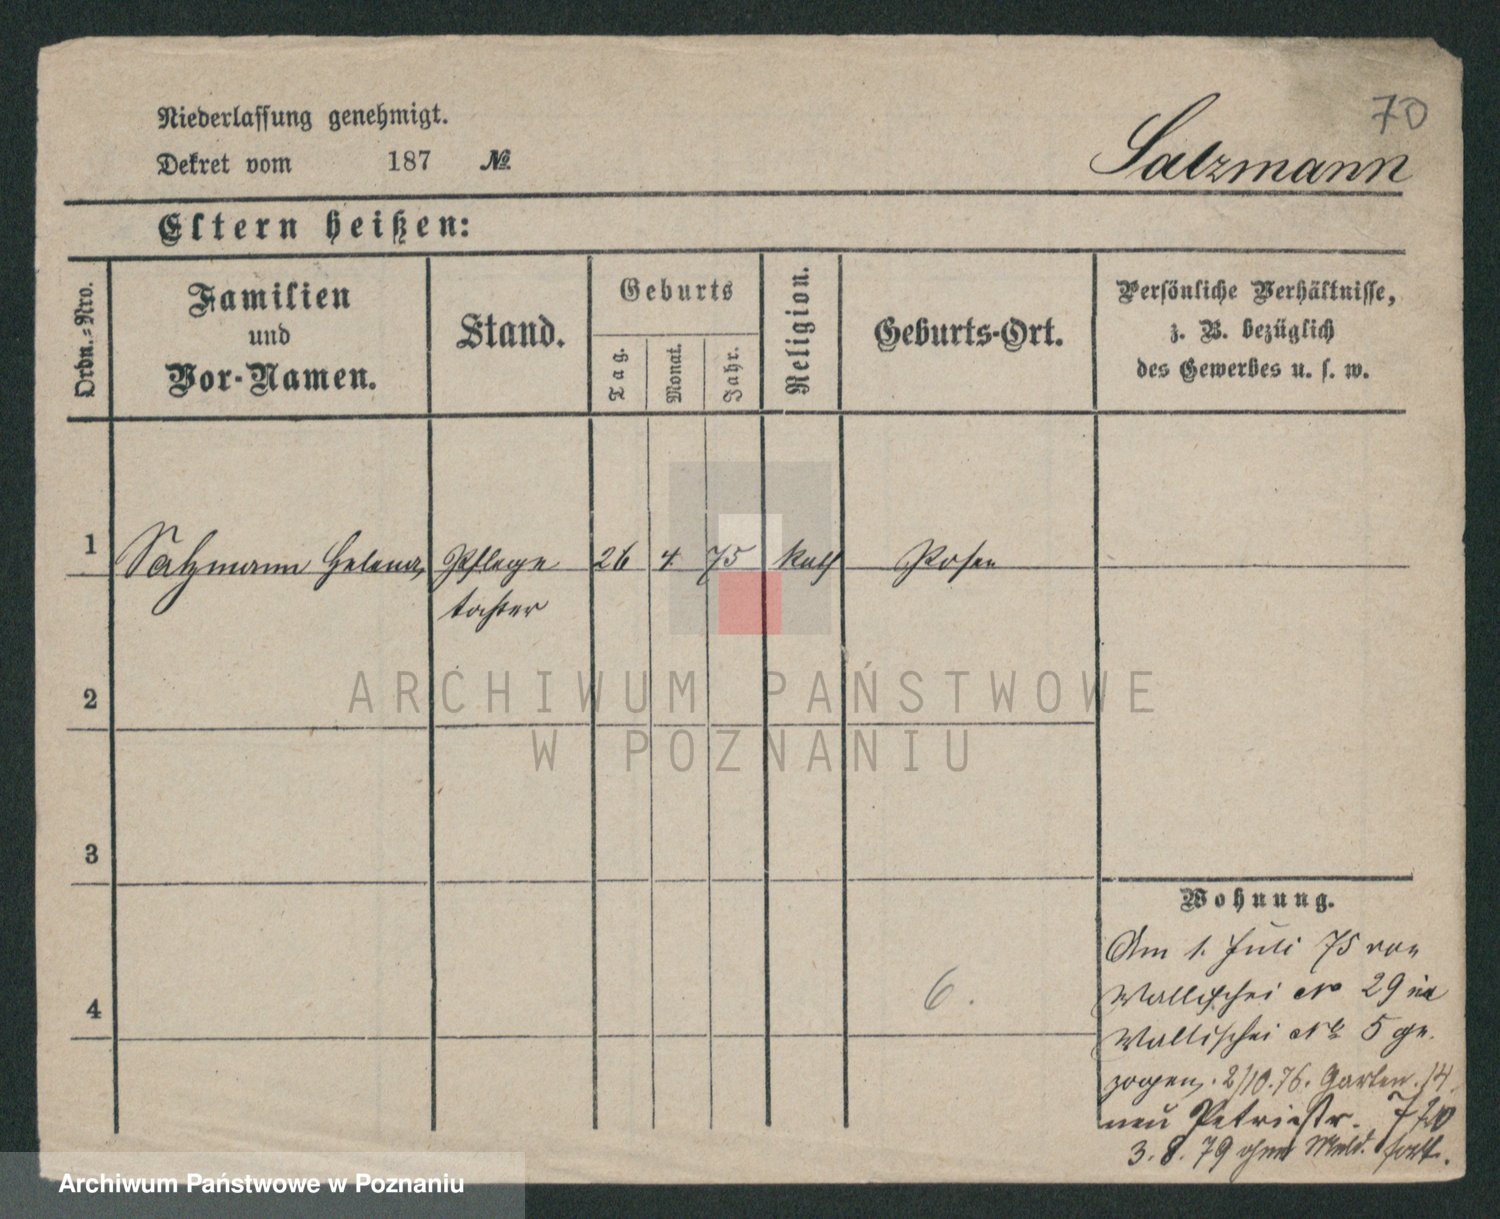 70
Niederlassung genehmigt.
Dekret vom 187 №
Salzmann
Eltern heißen:
Ordn.-Nro.
Familien
und
Vor-Namen.
Stand.
Geburts
Tag.
Monat.
Jahr.
Religion.
Geburts-Ort.
Persönliche Verhältnisse,
z. B. bezüglich
des Gewerbes u. s. w.
1 Salzmann Helena, Pflege 26 4. 75 kath Posen
tochter
ARCHIWUM PAŃSTWOWE
W POZNANIU
2
3
4
6.
Wohnung.
Am 1. Juli 75 von
Wallischei No 29 in
Wallischei No 5 ge-
zogen. 2/10.76. Garten. 14.
neu Petristr. 7
3. 8. 79 ohne Meld. fort.
Archiwum Państwowe w Poznaniu